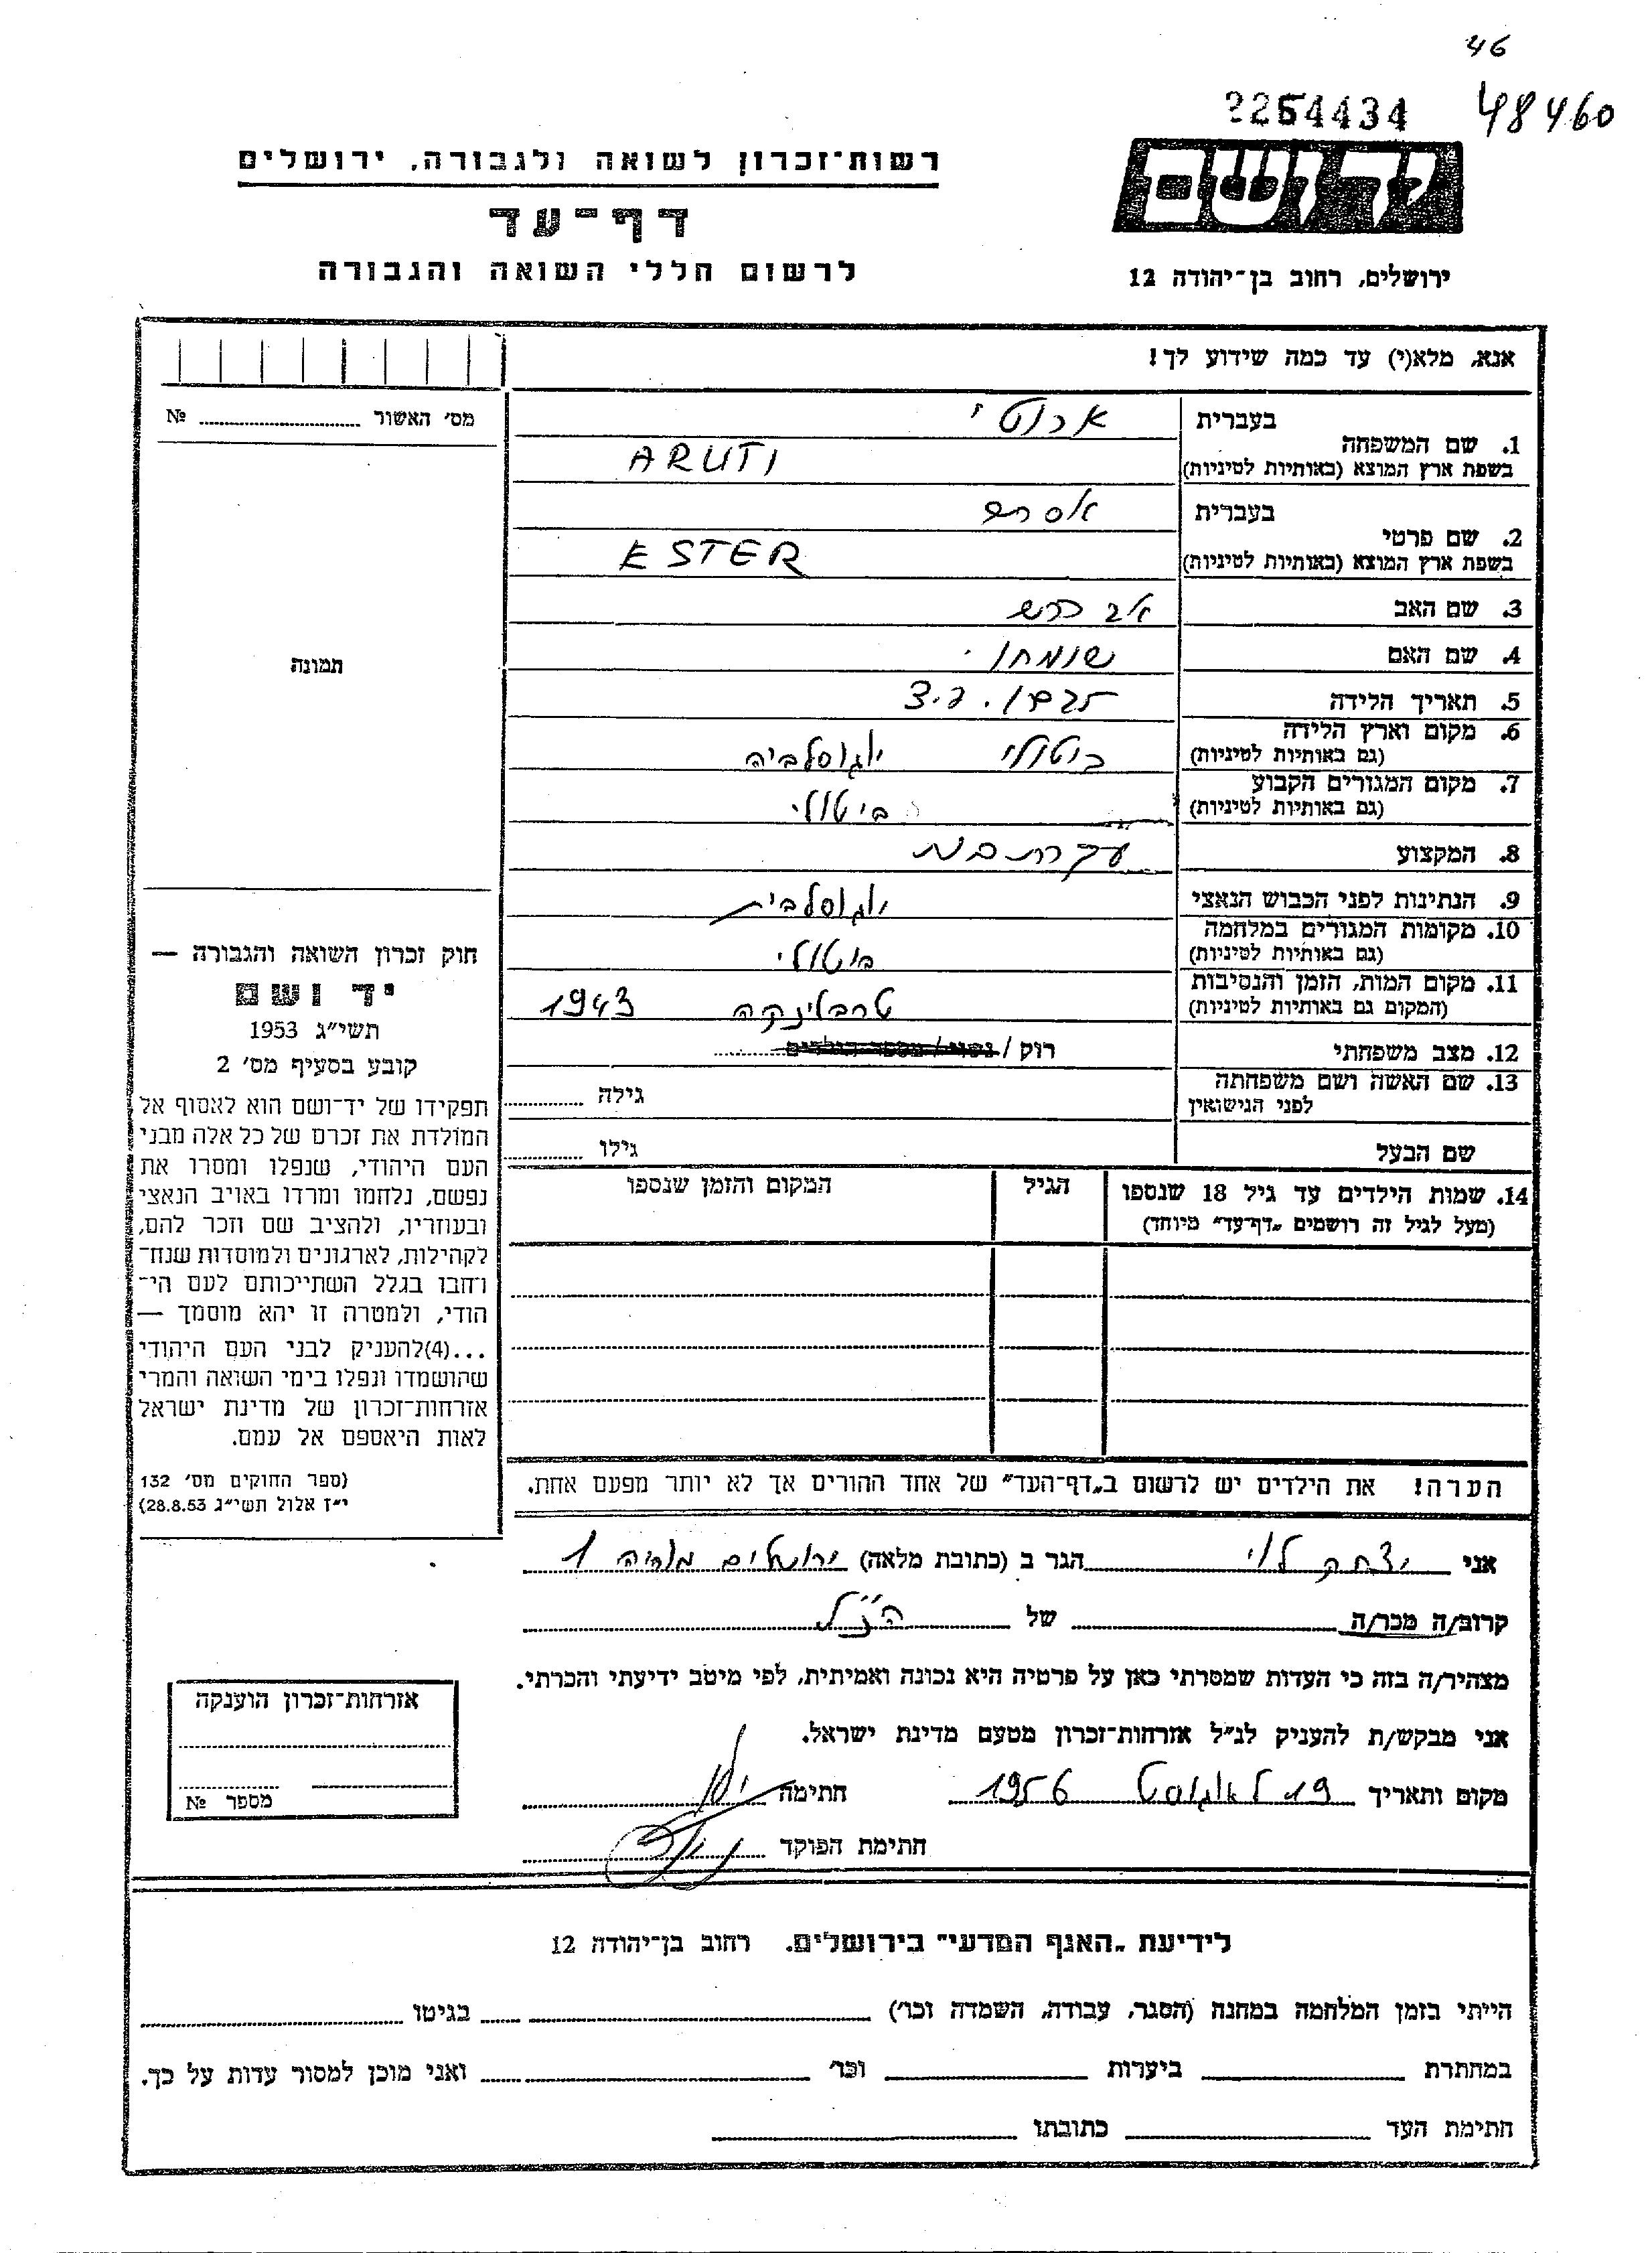 46
2264434 48460
רשות־זכרון לשואה ולגבורה, ירושלים
יד ושם
דף־עד
לרשום חללי השואה והגבורה
ירושלים, רחוב בן־יהודה 12
אנא, מלא(י) עד כמה שידוע לך!
מס׳ האשור № 
1. שם המשפחה
בעברית ארוטי
בשפת ארץ המוצא (באותיות לטיניות) ARUTI
2. שם פרטי
בעברית אסתר
בשפת ארץ המוצא (באותיות לטיניות) ESTER
3. שם האב
4. שם האם
5. תאריך הלידה
6. מקום וארץ הלידה ביטולי יוגוסלביה
(גם באותיות לטיניות)
7. מקום המגורים הקבוע ביטולי
(גם באותיות לטיניות)
8. המקצוע עקרת בית
9. הנתינות לפני הכבוש הנאצי יוגוסלבית
10. מקומות המגורים במלחמה ביטולי
(גם באותיות לטיניות)
11. מקום המות, הזמן והנסיבות טרבלינקה 1943
(המקום גם באותיות לטיניות)
12. מצב משפחתי רוק / נשוי / מספר הילדים
13. שם האשה ושם משפחתה גילה
לפני הנישואין
שם הבעל גילו
14. שמות הילדים עד גיל 18 שנספו הגיל המקום והזמן שנספו
(מעל לגיל זה רושמים „דף־עד” מיוחד)
תמונה
חוק זכרון השואה והגבורה —
יד ושם
תשי״ג 1953
קובע בסעיף מס׳ 2
תפקידו של יד־ושם הוא לאסוף אל
המולדת את זכרם של כל אלה מבני
העם היהודי, שנפלו ומסרו את
נפשם, נלחמו ומרדו באויב הנאצי
ובעוזריו, ולהציב שם וזכר להם,
לקהילות, לארגונים ולמוסדות שנח־
רבו בגלל השתייכותם לעם הי־
הודי, ולמטרה זו יהא מוסמך —
...(4)להעניק לבני העם היהודי
שהושמדו ונפלו בימי השואה והמרי
אזרחות־זכרון של מדינת ישראל
לאות היאספם אל עמם.
(ספר החוקים מס׳ 132
י״ז אלול תשי״ג 28.8.53)
הערה! את הילדים יש לרשום ב„דף־העד” של אחד ההורים אך לא יותר מפעם אחת.
אני יצחק לוי הגר ב (כתובת מלאה) ירושלים 1
קרוב/ה מכר/ה של הנ״ל
מצהיר/ה בזה כי העדות שמסרתי כאן על פרטיה היא נכונה ואמיתית, לפי מיטב ידיעתי והכרתי.
אני מבקש/ת להעניק לנ״ל אזרחות־זכרון מטעם מדינת ישראל.
מקום ותאריך 19 לאוגוסט 1956 חתימה
חתימת הפוקד
אזרחות־זכרון הוענקה
מספר №
לידיעת „האגף המדעי” בירושלים. רחוב בן־יהודה 12
הייתי בזמן המלחמה במחנה (הסגר, עבודה, השמדה וכו׳) בגיטו
במחתרת ביערות וכו׳ ואני מוכן למסור עדות על כך.
חתימת העד כתובתו